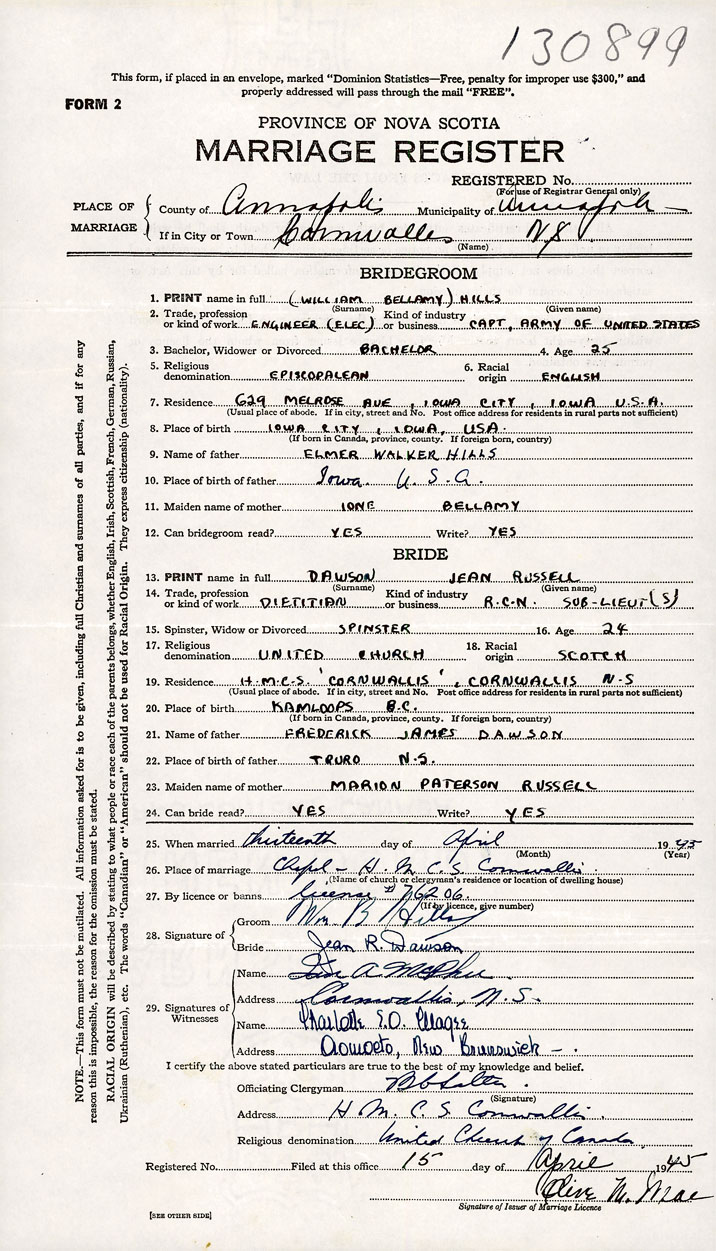 130899
This form, if placed in an envelope, marked "Dominion Statistics—Free, penalty for improper use $300," and
properly addressed will pass through the mail "FREE".
FORM 2
PROVINCE OF NOVA SCOTIA
MARRIAGE REGISTER
REGISTERED No.
(For use of Registrar General only)
PLACE OF MARRIAGE
County of Annapolis Municipality of Annapolis
If in City or Town Cornwallis N.S.
(Name)
BRIDEGROOM
1. PRINT name in full (WILLIAM BELLAMY) HILLS
(Surname) (Given name)
2. Trade, profession or kind of work ENGINEER (ELEC) Kind of industry or business CAPT, ARMY OF UNITED STATES
3. Bachelor, Widower or Divorced BACHELOR 4. Age 25
5. Religious denomination EPISCOPALEAN 6. Racial origin ENGLISH
7. Residence 629 MELROSE AVE, IOWA CITY, IOWA U.S.A.
(Usual place of abode. If in city, street and No. Post office address for residents in rural parts not sufficient)
8. Place of birth IOWA CITY, IOWA, USA.
(If born in Canada, province, county. If foreign born, country)
9. Name of father ELMER WALKER HILLS
10. Place of birth of father Iowa. U.S.A.
11. Maiden name of mother IONE BELLAMY
12. Can bridegroom read? YES Write? YES
BRIDE
13. PRINT name in full DAWSON JEAN RUSSELL
(Surname) (Given name)
14. Trade, profession or kind of work DIETITIAN Kind of industry or business R.C.N. SUB-LIEUT(S)
15. Spinster, Widow or Divorced SPINSTER 16. Age 24
17. Religious denomination UNITED CHURCH 18. Racial origin SCOTCH
19. Residence H.M.C.S. 'CORNWALLIS', CORNWALLIS N-S
(Usual place of abode. If in city, street and No. Post office address for residents in rural parts not sufficient)
20. Place of birth KAMLOOPS B.C.
(If born in Canada, province, county. If foreign born, country)
21. Name of father FREDERICK JAMES DAWSON
22. Place of birth of father TRURO N.S.
23. Maiden name of mother MARION PATERSON RUSSELL
24. Can bride read? YES Write? YES
25. When married thirteenth day of April 1945
(Month) (Year)
26. Place of marriage Chapel - H M C S Cornwallis
(Name of church or clergyman's residence or location of dwelling house)
27. By licence or banns License # 76206.
(If by licence, give number)
28. Signature of
Groom Wm B Hills
Bride Jean R. Dawson
29. Signatures of Witnesses
Name A. McPhee
Address Cornwallis, N.S.
Name Charlotte E.O. Magee
Address Oromocto, New Brunswick -.
I certify the above stated particulars are true to the best of my knowledge and belief.
Officiating Clergyman
(Signature)
Address H M. C. S. Cornwallis.
Religious denomination United Church of Canada
Registered No. Filed at this office 15 day of April 1945
Olive M. Mrae
Signature of Issuer of Marriage Licence
[SEE OTHER SIDE]
NOTE.—This form must not be mutilated. All information asked for is to be given, including full Christian and surnames of all parties, and if for any
reason this is impossible, the reason for the omission must be stated.
RACIAL ORIGIN will be described by stating to what people or race each of the parents belongs, whether English, Irish, Scottish, French, German, Russian,
Ukrainian (Ruthenian), etc. The words "Canadian" or "American" should not be used for Racial Origin. They express citizenship (nationality).